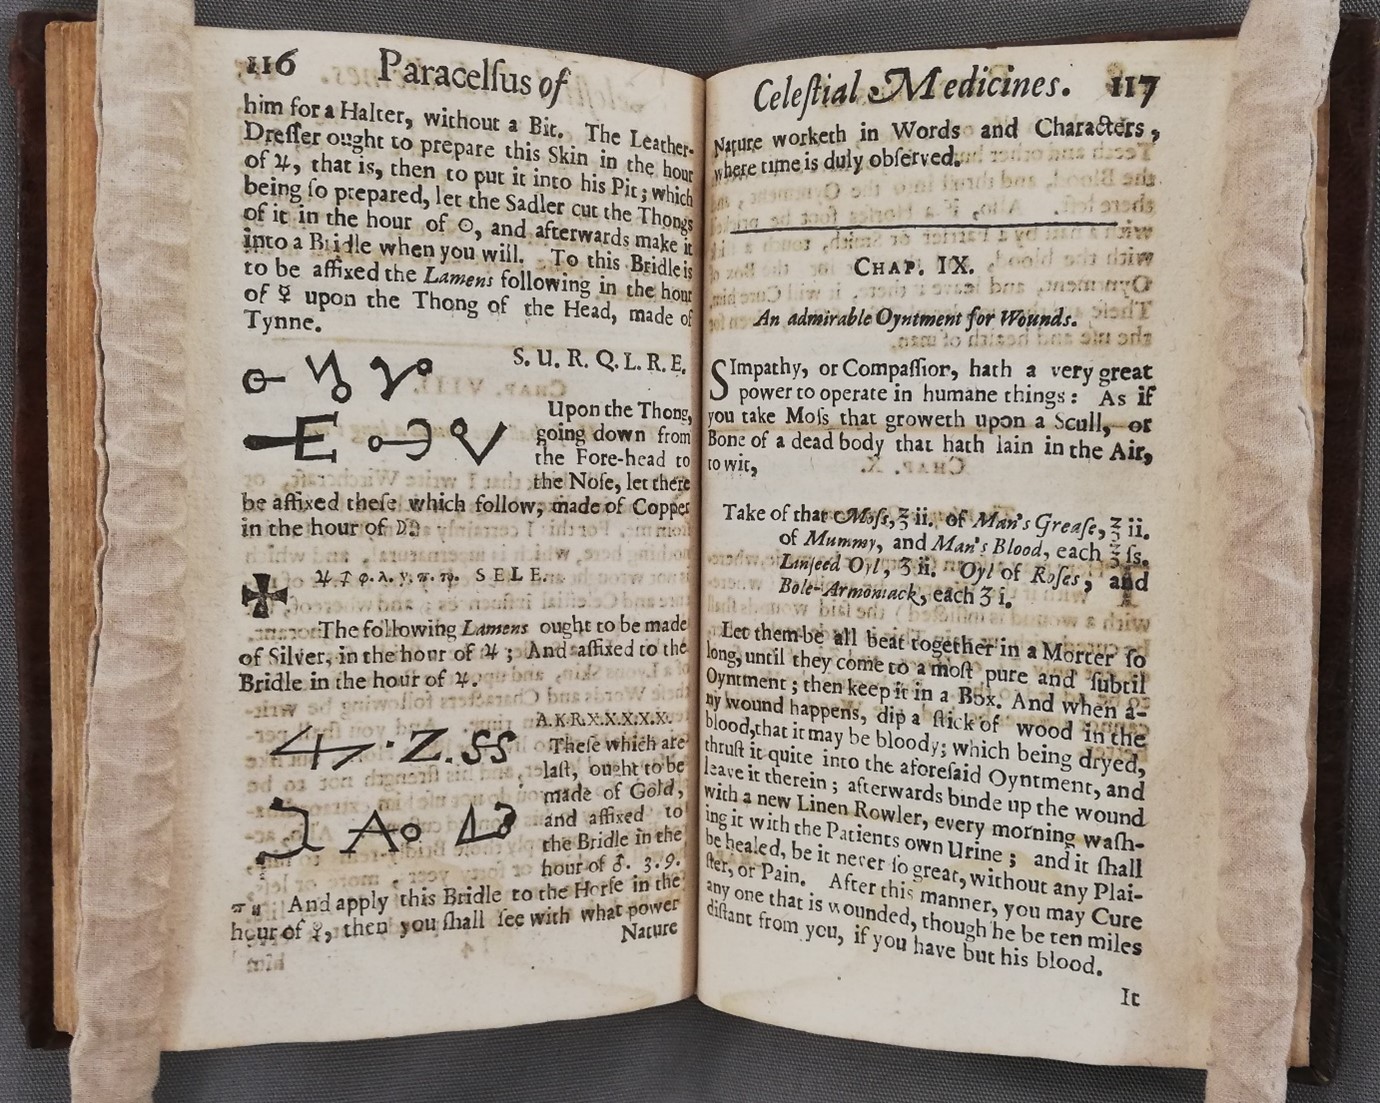 116 Paracelſus of
him for a Halter, without a Bit. The Leather-
Dreſſer ought to prepare this Skin in the hour
of ♃, that is, then to put it into his Pit; which
being ſo prepared, let the Sadler cut the Thongs
of it in the hour of ☉, and afterwards make it
into a Bridle when you will. To this Bridle is
to be affixed the Lamens following in the hour
of ☿ upon the Thong of the Head, made of
Tynne.
S. U. R. Q. L. R. E.
Upon the Thong,
going down from
the Fore-head to
the Noſe, let there
be affixed theſe which follow, made of Copper
in the hour of
S E L E.
The following Lamens ought to be made
of Silver, in the hour of ♃; And affixed to the
Bridle in the hour of ♃.
A. K. R. X. X. X. X. X.
4 · Z. SS
Theſe which are
laſt, ought to be
made of Gold,
and affixed to
the Bridle in the
hour of ♂. 3. 9.
And apply this Bridle to the Horſe in the
hour of ☿, then you ſhall ſee with what power
Nature
Celeſtial Medicines. 117
Nature worketh in Words and Characters,
where time is duly obſerved.
CHAP. IX.
An admirable Oyntment for Wounds.
SImpathy, or Compaſſior, hath a very great
power to operate in humane things: As if
you take Moſs that groweth upon a Scull, or
Bone of a dead body that hath lain in the Air,
to wit,
Take of that Moſs, ℥ ii. of Man's Greaſe, ℥ ii.
of Mummy, and Man's Blood, each ℥ ſs.
Linſeed Oyl, ℥ ii. Oyl of Roſes, and
Bole-Armoniack, each ℥ i.
Let them be all beat together in a Morter ſo
long, until they come to a moſt pure and ſubtil
Oyntment; then keep it in a Box. And when a-
ny wound happens, dip a ſtick of wood in the
blood, that it may be bloody; which being dryed,
thruſt it quite into the aforeſaid Oyntment, and
leave it therein; afterwards binde up the wound
with a new Linen Rowler, every morning waſh-
ing it with the Patients own Urine; and it ſhall
be healed, be it never ſo great, without any Plai-
ſter, or Pain. After this manner, you may Cure
any one that is wounded, though he be ten miles
diſtant from you, if you have but his blood.
It